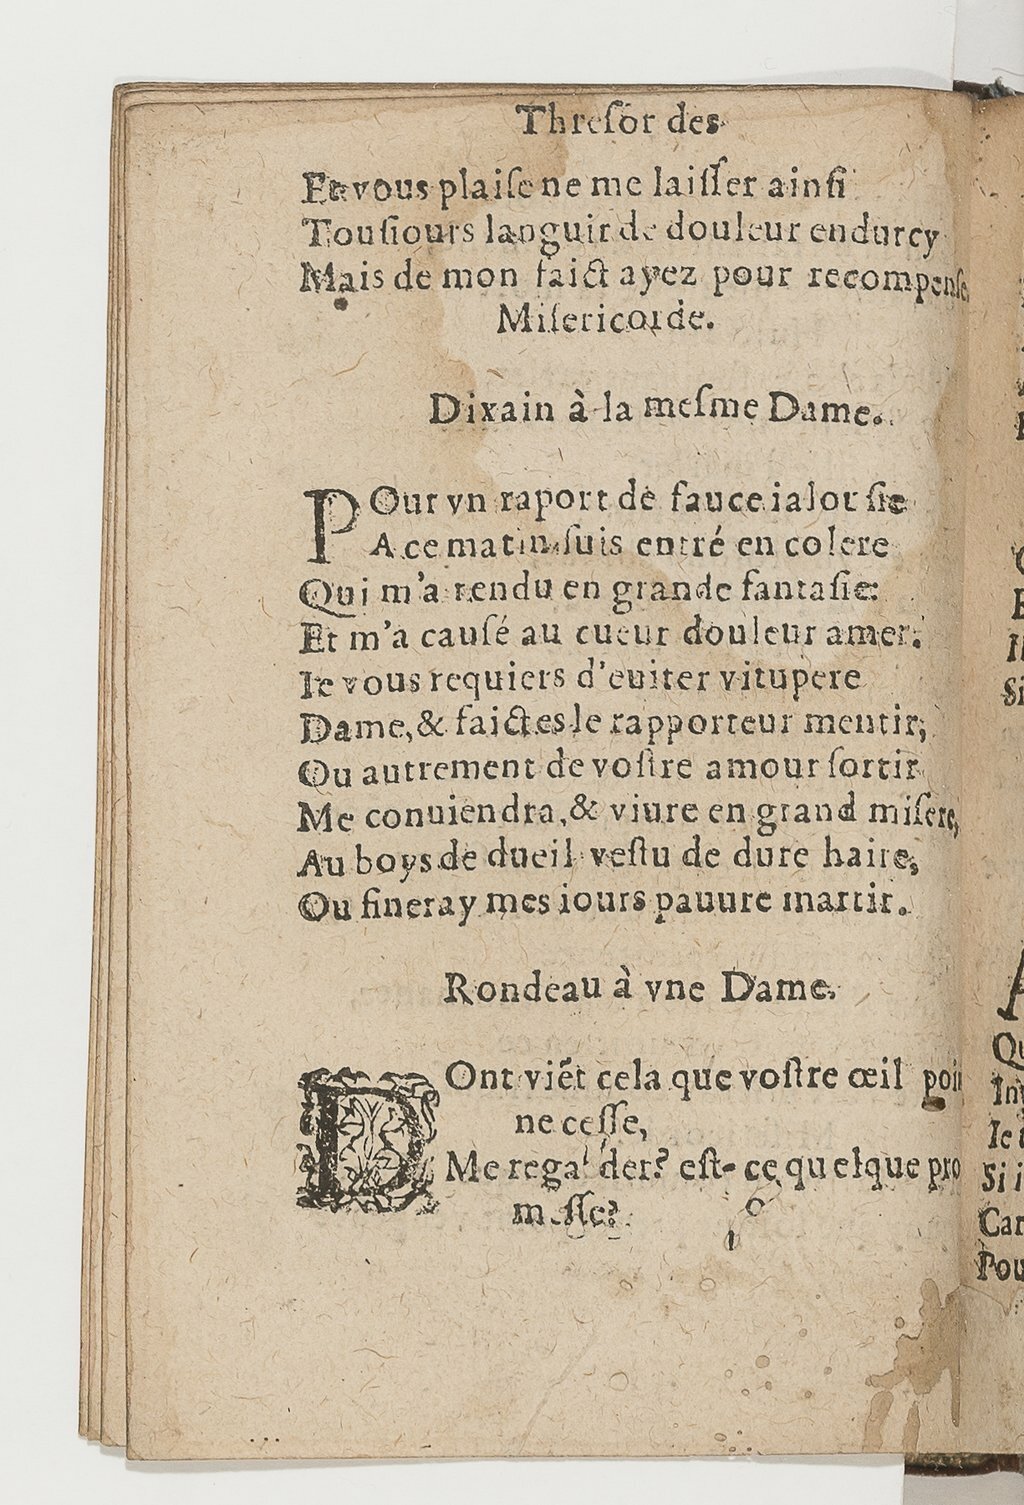 Threſor des
Et vous plaiſe ne me laiſſer ainſi
Touſiours languir de douleur endurcy
Mais de mon faict ayez pour recompenſe,
Miſericorde.
Dixain à la meſme Dame.
POur vn raport de fauce ialouſie
A ce matin ſuis entré en colere
Qui m'a rendu en grande fantaſie:
Et m'a cauſé au cueur douleur amer.
Ie vous requiers d'euiter vitupere
Dame, & faictes le rapporteur mentir,
Ou autrement de voſtre amour ſortir
Me conuiendra, & viure en grand miſere,
Au boys de dueil veſtu de dure haire,
Ou fineray mes iours pauure martir.
Rondeau à vne Dame.
DOnt viẽt cela que voſtre œil poin
ne ceſſe,
Me regarder? eſt-ce quelque pro
meſſe?
Qu
Ie
Si i
Car
Pou